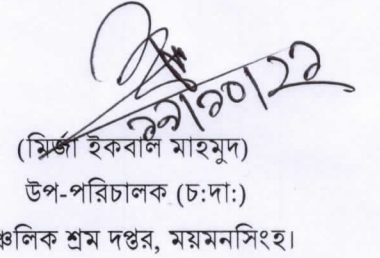 (মির্জা ইকবাল মাহমুদ)
উপ-পরিচালক (চ:দা:)
ঞ্চলিক শ্রম দপ্তর, ময়মনসিংহ।